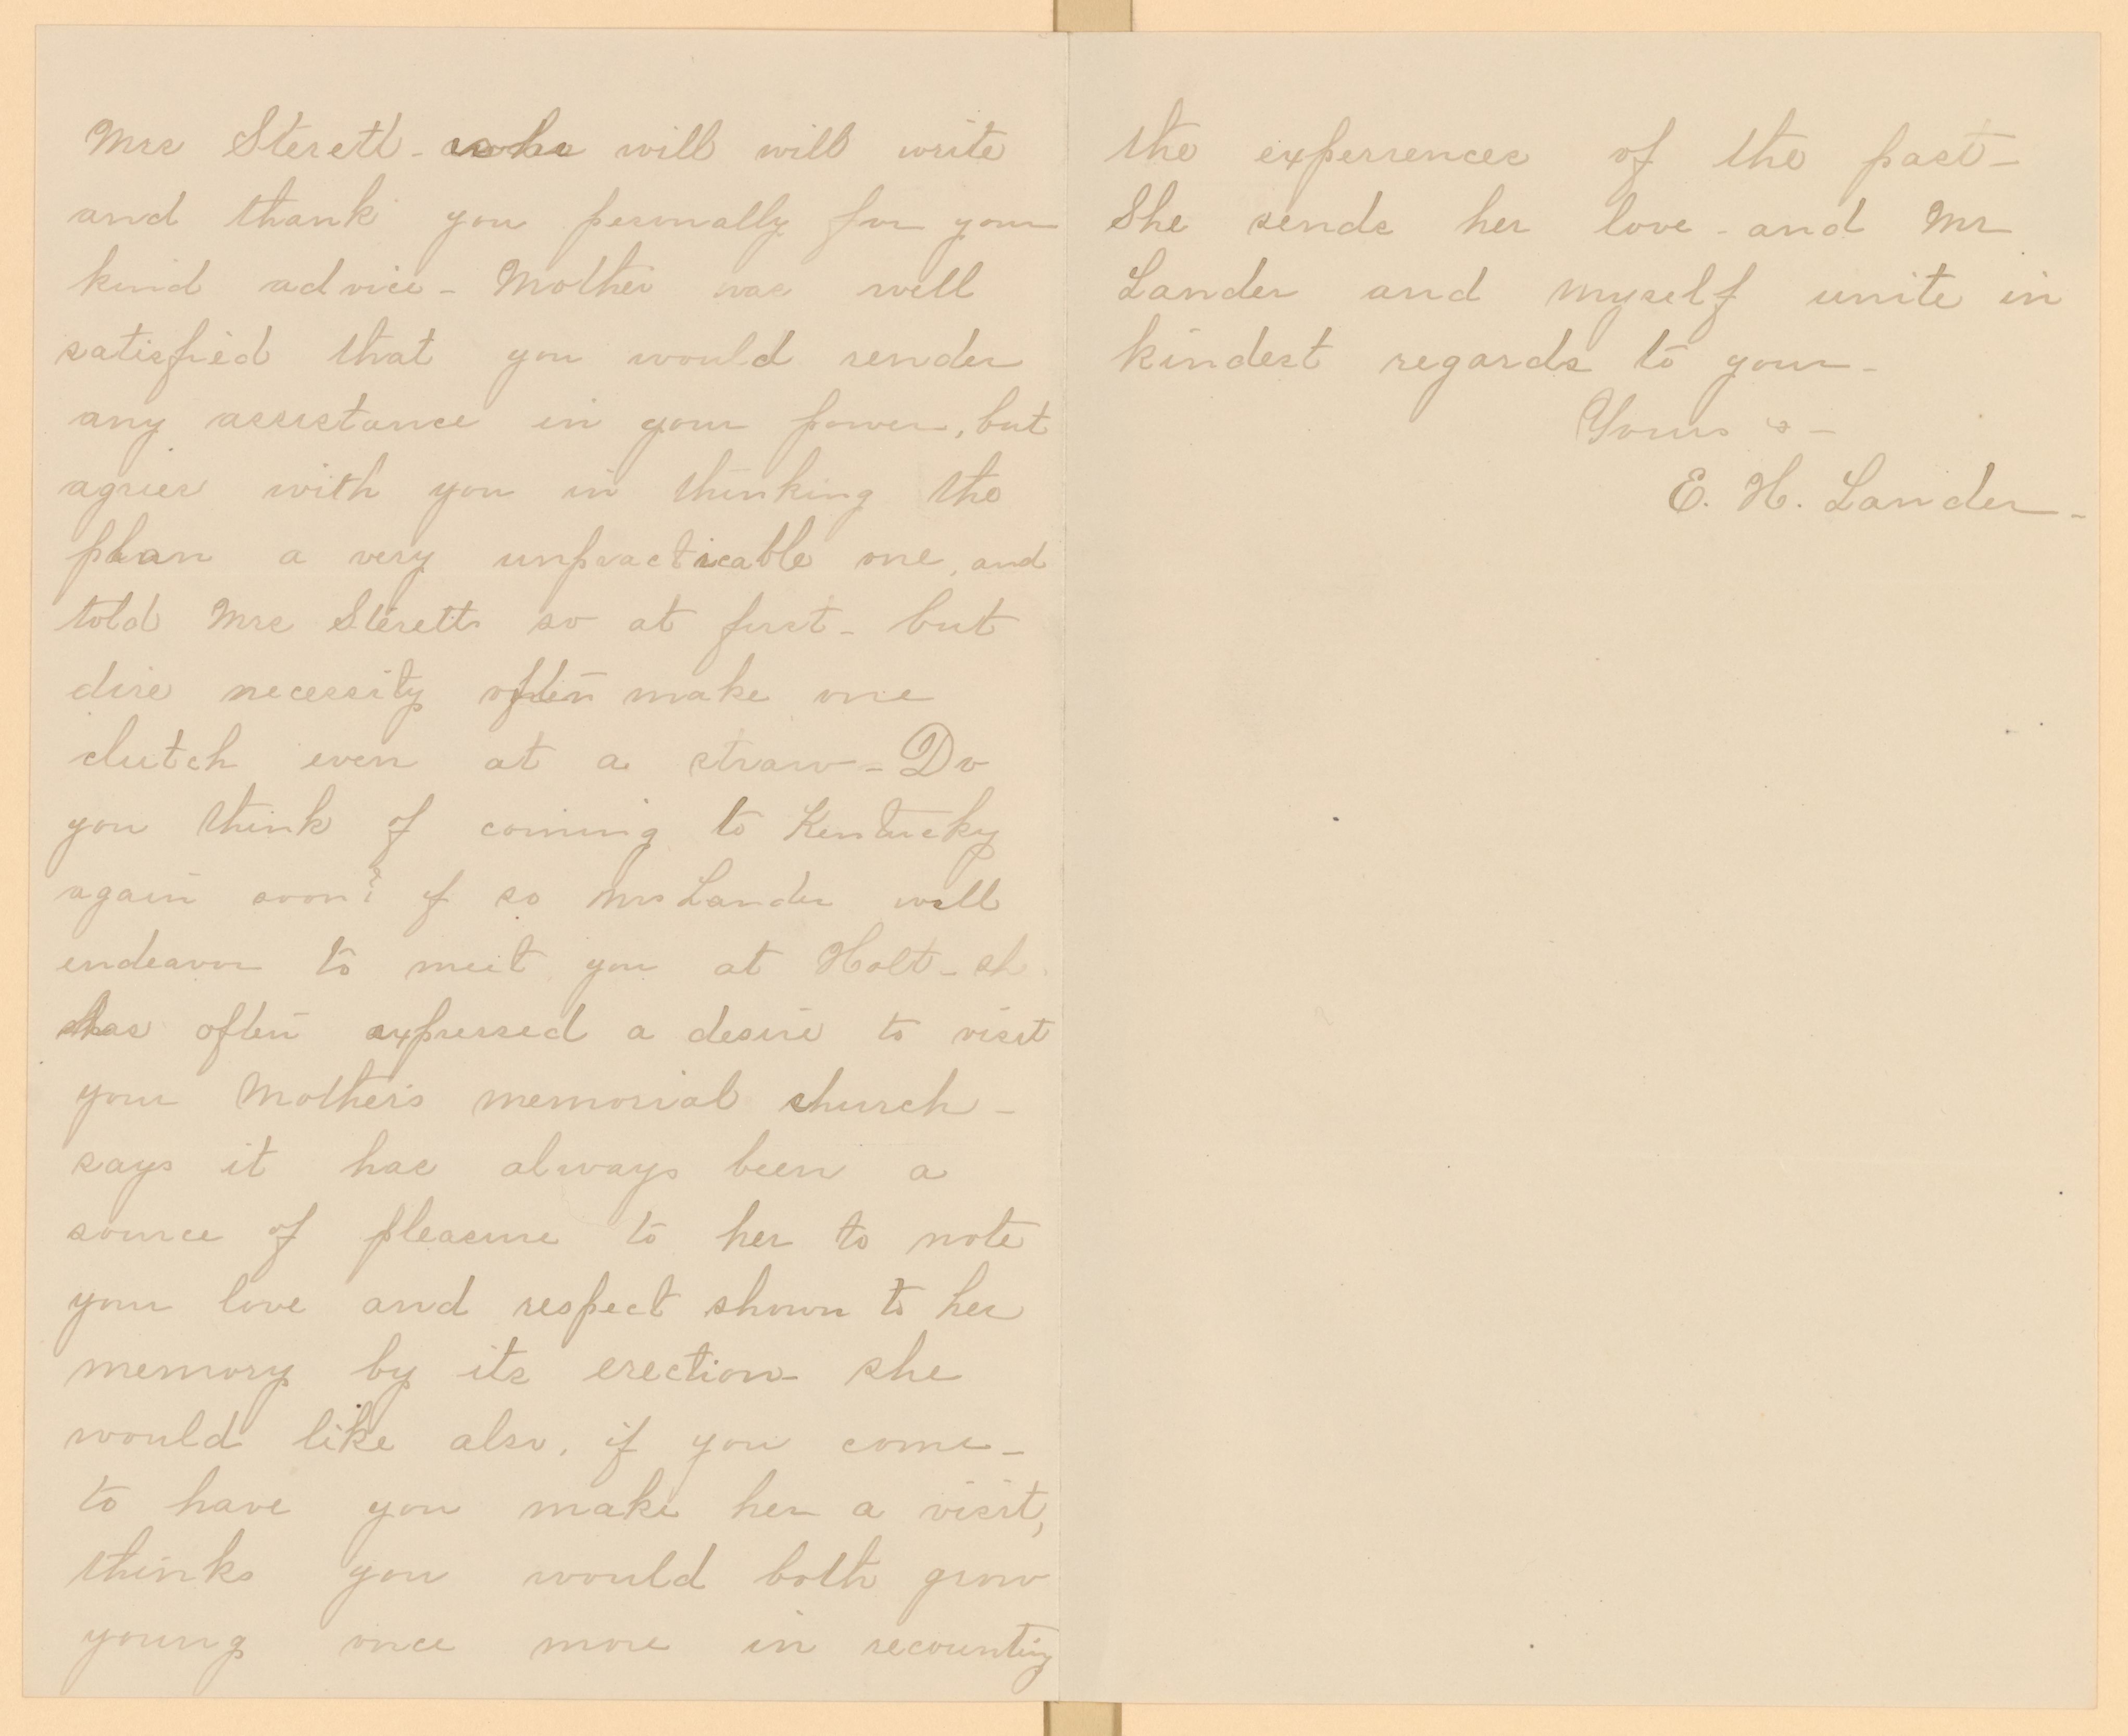 Mrs Sterett - who will will write
and thank you persnally for your
kind advice - Mother was well
satisfied that you would render
any assistance in your power, but
agrees with you in thinking the
plan a very unpracticable one, and
told Mrs Sterett so at first - but
dire necessity often make one
clutch even at a straw - Do
you think of coming to Kentucky
again soon? if so Mrs Lander will
endeavor to meet you at Holt - sh
has often expressed a desire to visit
your Mother's memorial church -
says it has always been a
source of pleasure to her to note
your love and respect shown to her
memory by its erection - she
would like also, if you come -
to have you make her a visit,
thinks you would both grow
young once more in recounting
the experiences of the past -
She sends her love - and Mr
Lander and myself unite in
kindest regards to your -
Yours & -
E. H. Lander -